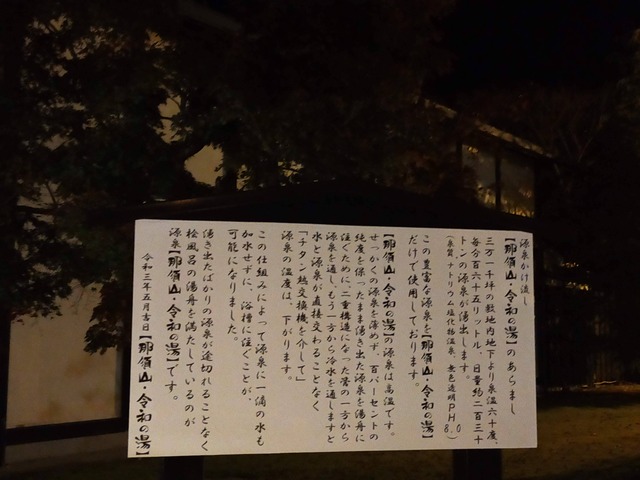 源泉かけ流し
【那須山・令和の湯】のあらまし
三万一千坪の敷地内地下より泉温六十度、
毎分百六十五リットル、日量約二百三十
トンの源泉が湧出します。
（泉質 ナトリウム塩化物温泉、無色透明PH8.0）
この豊富な源泉を【那須山・令和の湯】
だけで使用しております。
【那須山・令和の湯】の源泉は高温です。
せっかくの源泉を薄めず、百パーセントの
純度を保ったまま湧き出た源泉を湯舟に
注ぐために、二重構造になった管の一方から
源泉を通し、もう一方から冷水を通しますと
水と源泉が直接交わることなく
「チタン熱交換機を介して」
源泉の温度は、下がります。
この仕組みによって源泉に一滴の水も
加水せずに、浴槽に注ぐことが
可能になりました。
湧き出たばかりの源泉が途切れることなく
桧風呂の湯舟を満たしているのが
源泉【那須山・令和の湯】です。
令和三年五月吉日【那須山・令和の湯】